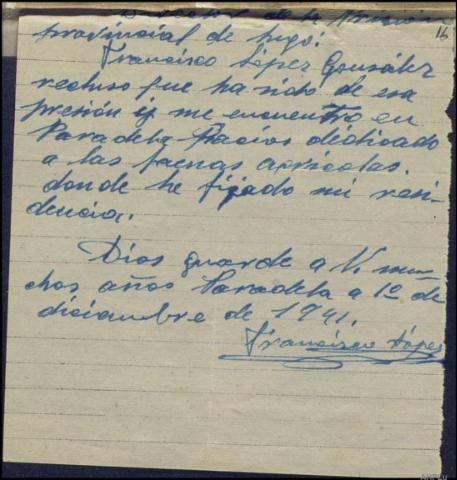 Director de la Prisión
16
provincial de Lugo:
Francisco López González
recluso que ha sido de esa
presión y me encuentro en
Paradela Placios dedicado
a las faenas agricolas.
donde he fijado mi resi-
dencia.
Dios guarde a V. mu-
chos años Paradela a 1º de
diciembre de 1941.
Francisco López